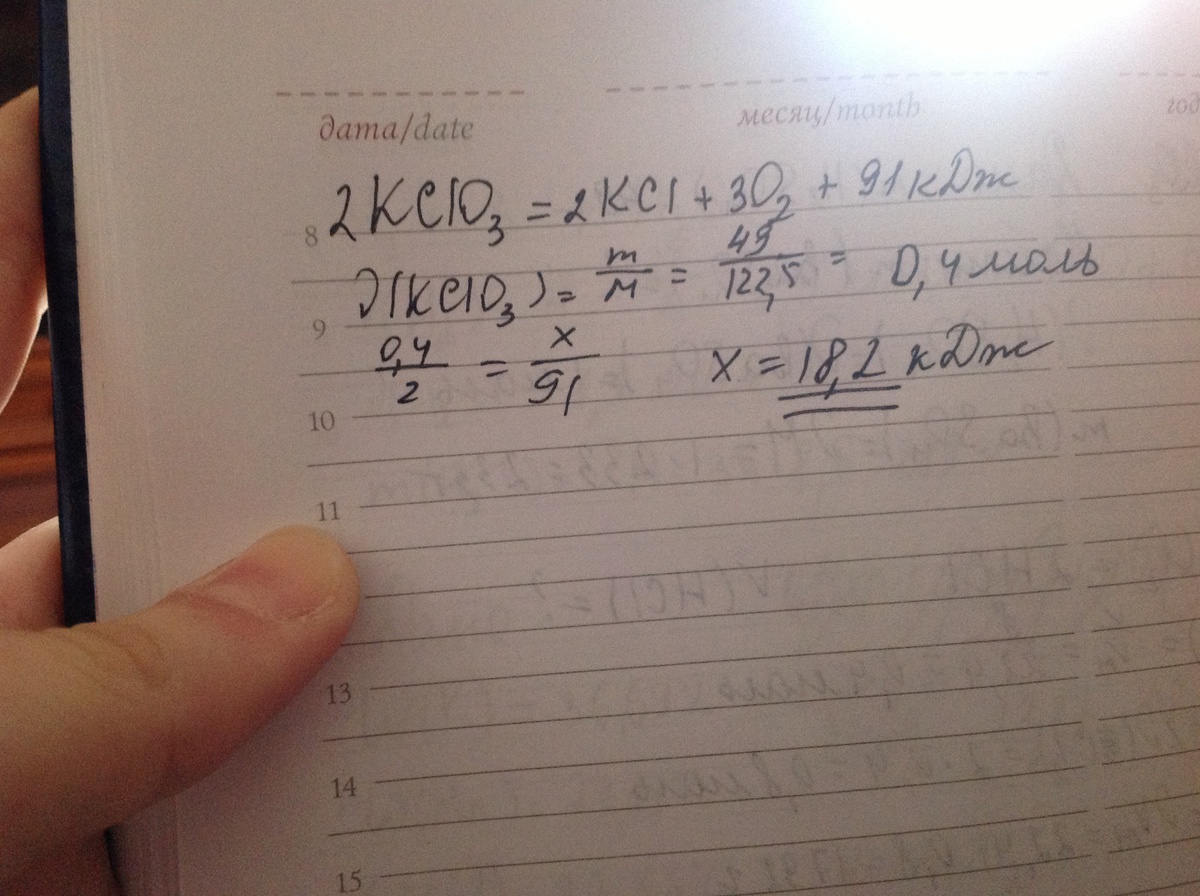 дата/date месяц/month год
2KClO₃ = 2KCl + 3O₂ + 91 кДж
8
ν(KClO₃) = m/M = 49/122,5 = 0,4 моль
9
0,4/2 = x/91 x = 18,2 кДж
10
11
13
14
15